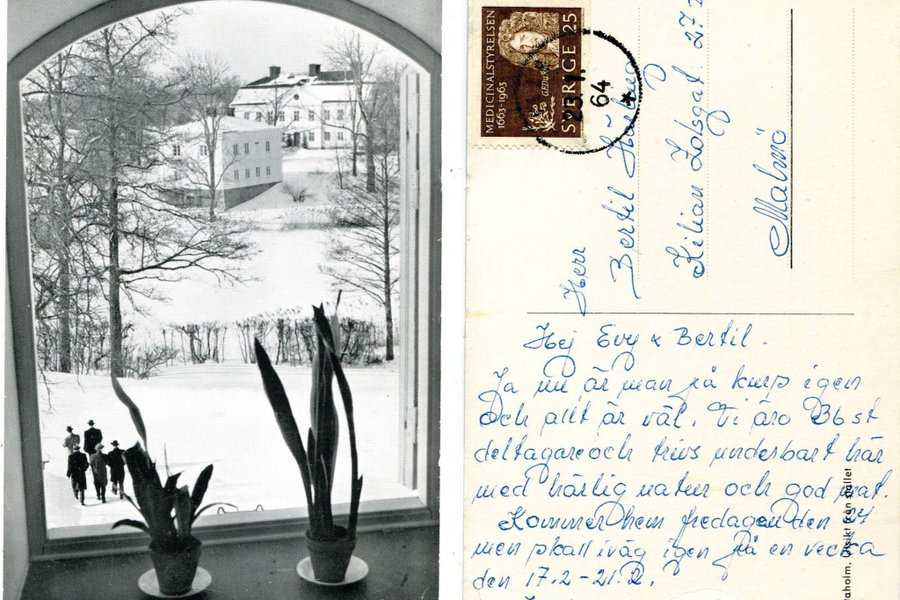 MEDICINALSTYRELSEN
1663-1963
SVERIGE 25
64
Herr
Bertil
Kilian
Malmö
Hej Evy & Bertil.
Ja nu är man på kurs igen
och allt är väl. Vi äro 36 st
deltagare och trivs underbart här
med härlig natur och god mat.
Kommer hem fredagen den 24
men skall iväg igen på en vecka
den 17.2-21.2.
Utsikt från stallet